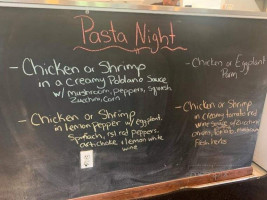 Pasta Night
- Chicken or Shrimp
in a Creamy Poblano Sauce
w/ mushroom, peppers, squash
Zucchini, Corn
- Chicken or Shrimp
in lemon pepper w/ eggplant,
Spinach, rst red peppers,
artichoke & lemon white
wine
- Chicken or Eggplant
Parm
- Chicken or Shrimp
in creamy tomato red
wine sauce
onion, tomato,
Fresh herbs